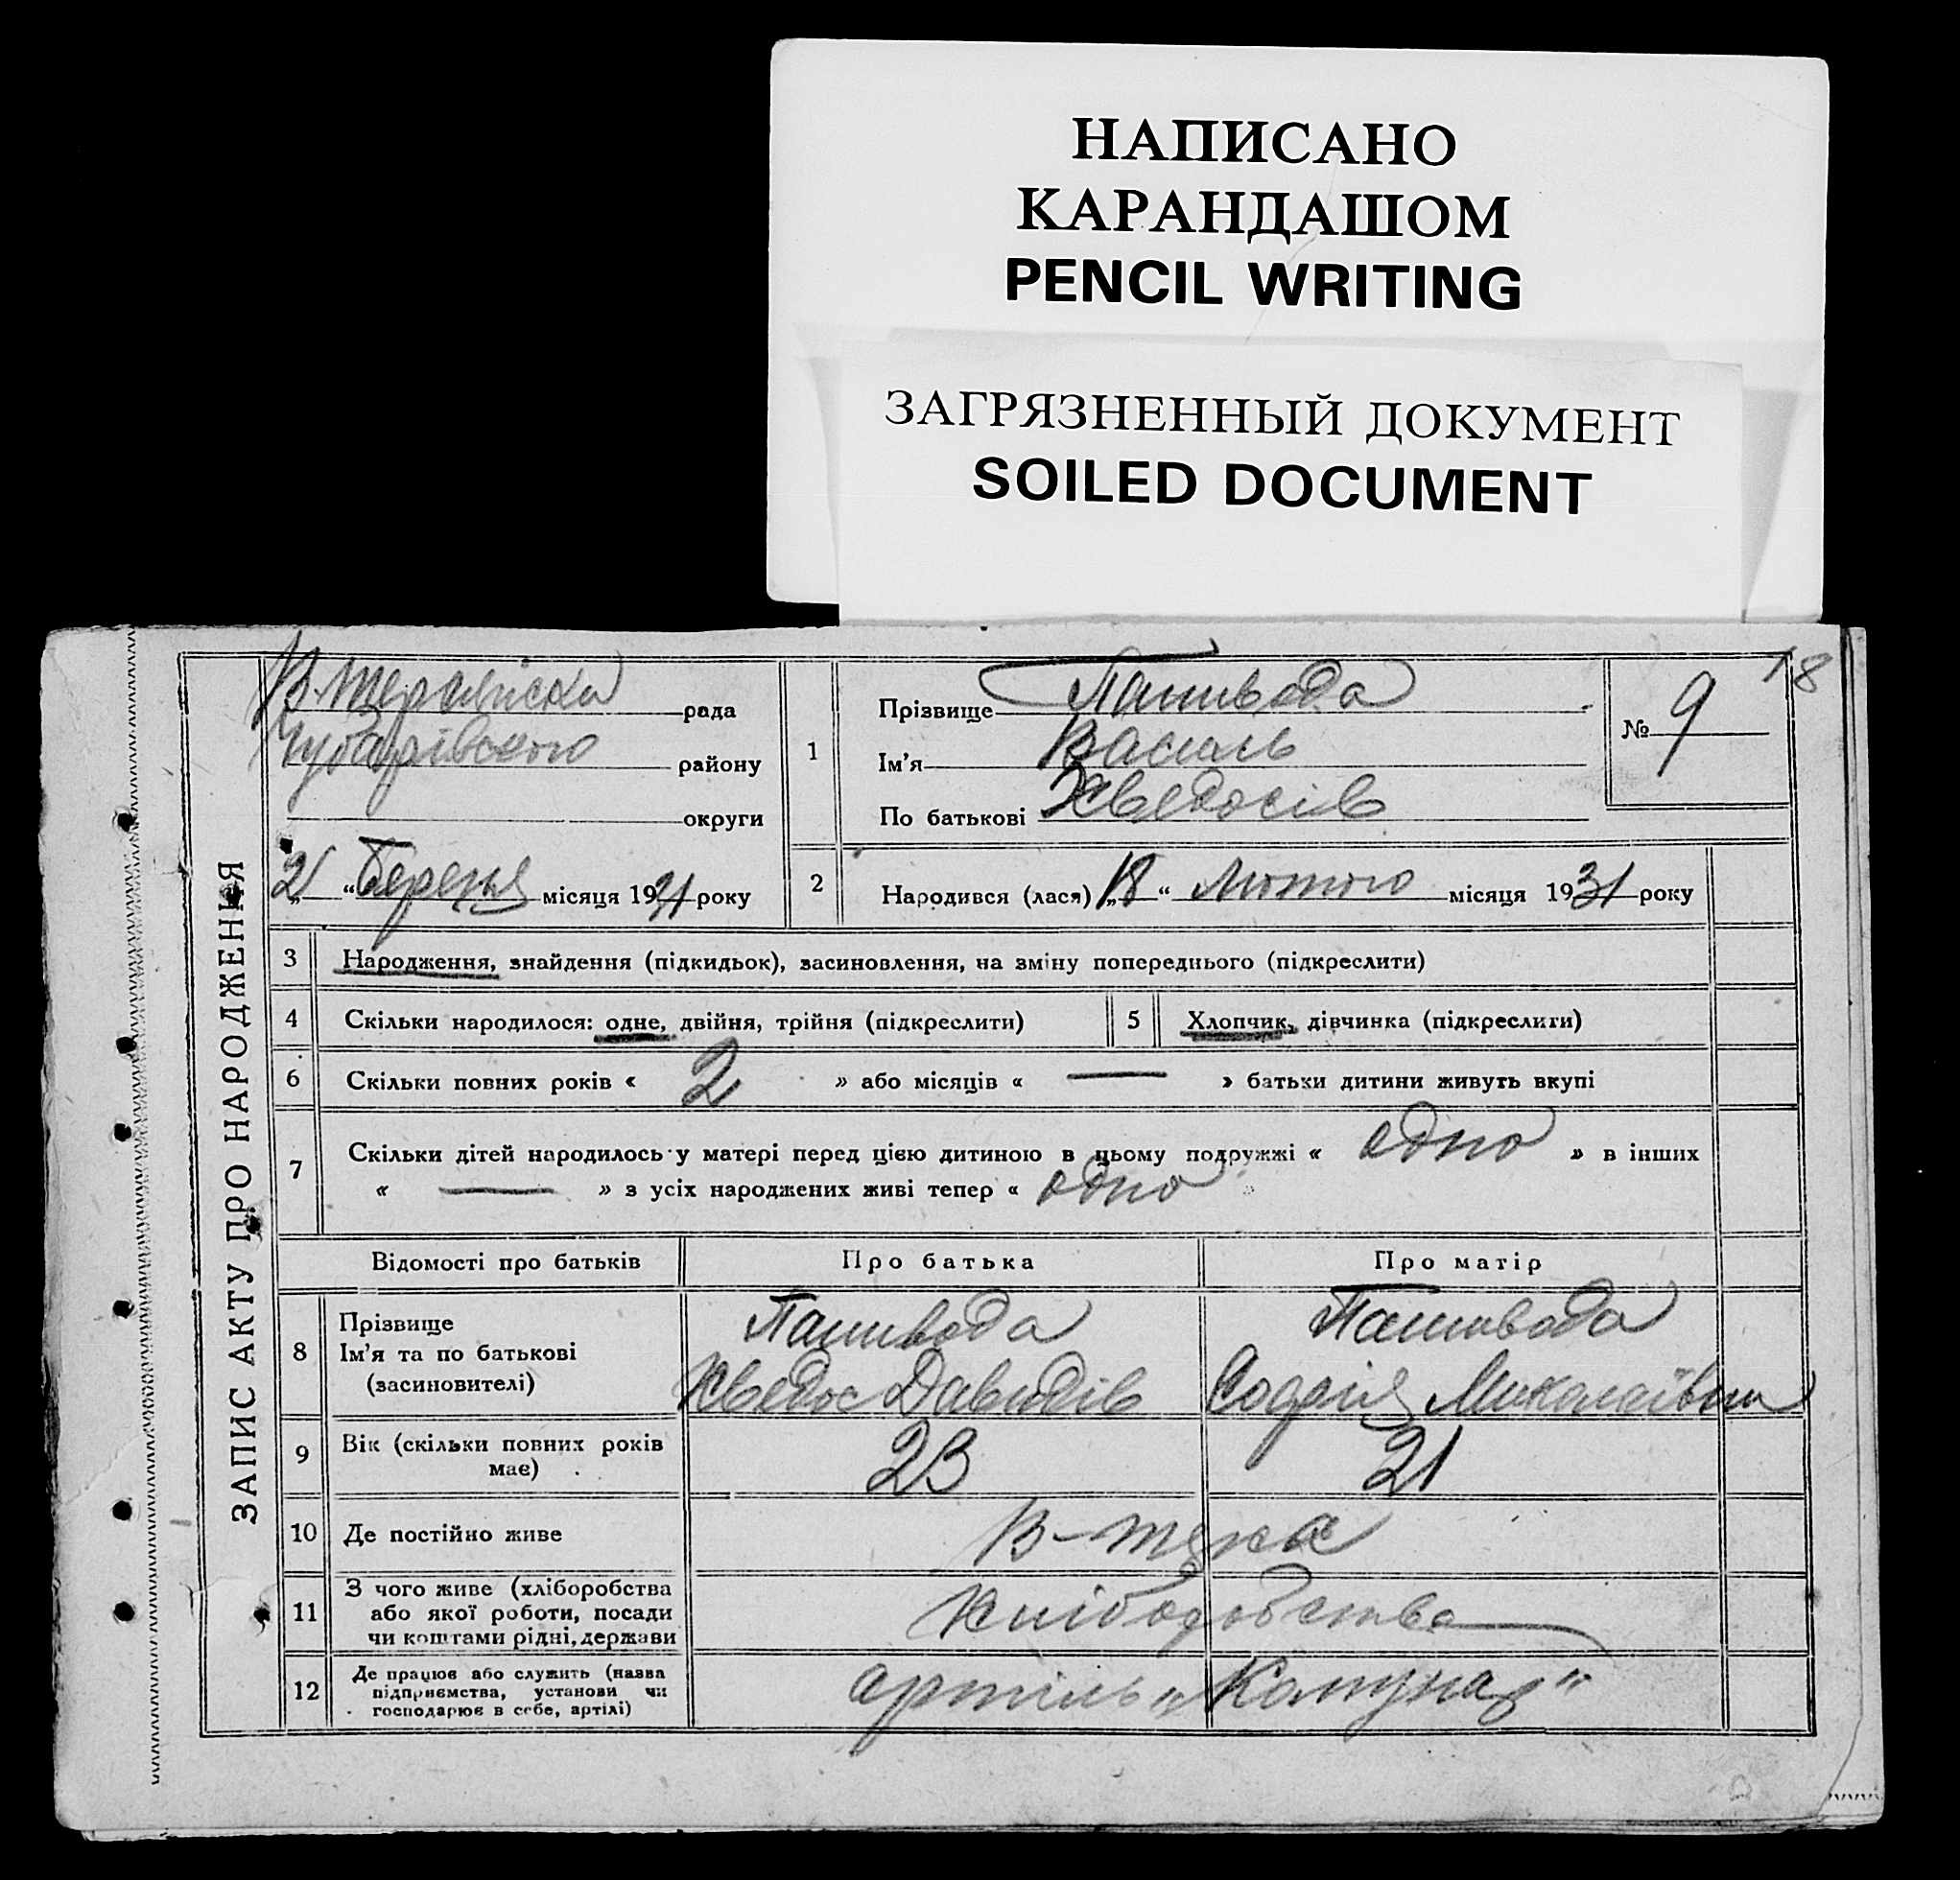 НАПИСАНО
КАРАНДАШОМ
PENCIL WRITING
ЗАГРЯЗНЕННЫЙ ДОКУМЕНТ
SOILED DOCUMENT
18
ЗАПИС АКТУ ПРО НАРОДЖЕННЯ
рада
Чубарівського району
округи
2 „ “ Березня місяця 1931 року
1
Прізвище Пашивода
Ім'я Василь
По батькові Хведосів
№ 9
2 Народився (лася) „18“ Лютого місяця 1931 року
3 Народження, знайдення (підкидьок), засиновлення, на зміну попереднього (підкреслити)
4 Скільки народилося: одне, двійня, трійня (підкреслити)
5 Хлопчик, дівчинка (підкреслити)
6 Скільки повних років « 2 » або місяців « — » батьки дитини живуть вкупі
7 Скільки дітей народилось у матері перед цією дитиною в цьому подружжі « одно » в інших
« — » з усіх народжених живі тепер « одно »
Відомості про батьків Про батька Про матір
8 Прізвище
Ім'я та по батькові
(засиновителі)
Пашивода
Хведос Давидів
Пашивода
Софія Миколаївна
9 Вік (скільки повних років
має)
23 21
10 Де постійно живе
11 З чого живе (хліборобства
або якої роботи, посади
чи коштами рідні, держави
Хліборобства
12 Де працює або служить (назва
підприємства, установи чи
господарює в себе, артілі)
артіль „Комунар"